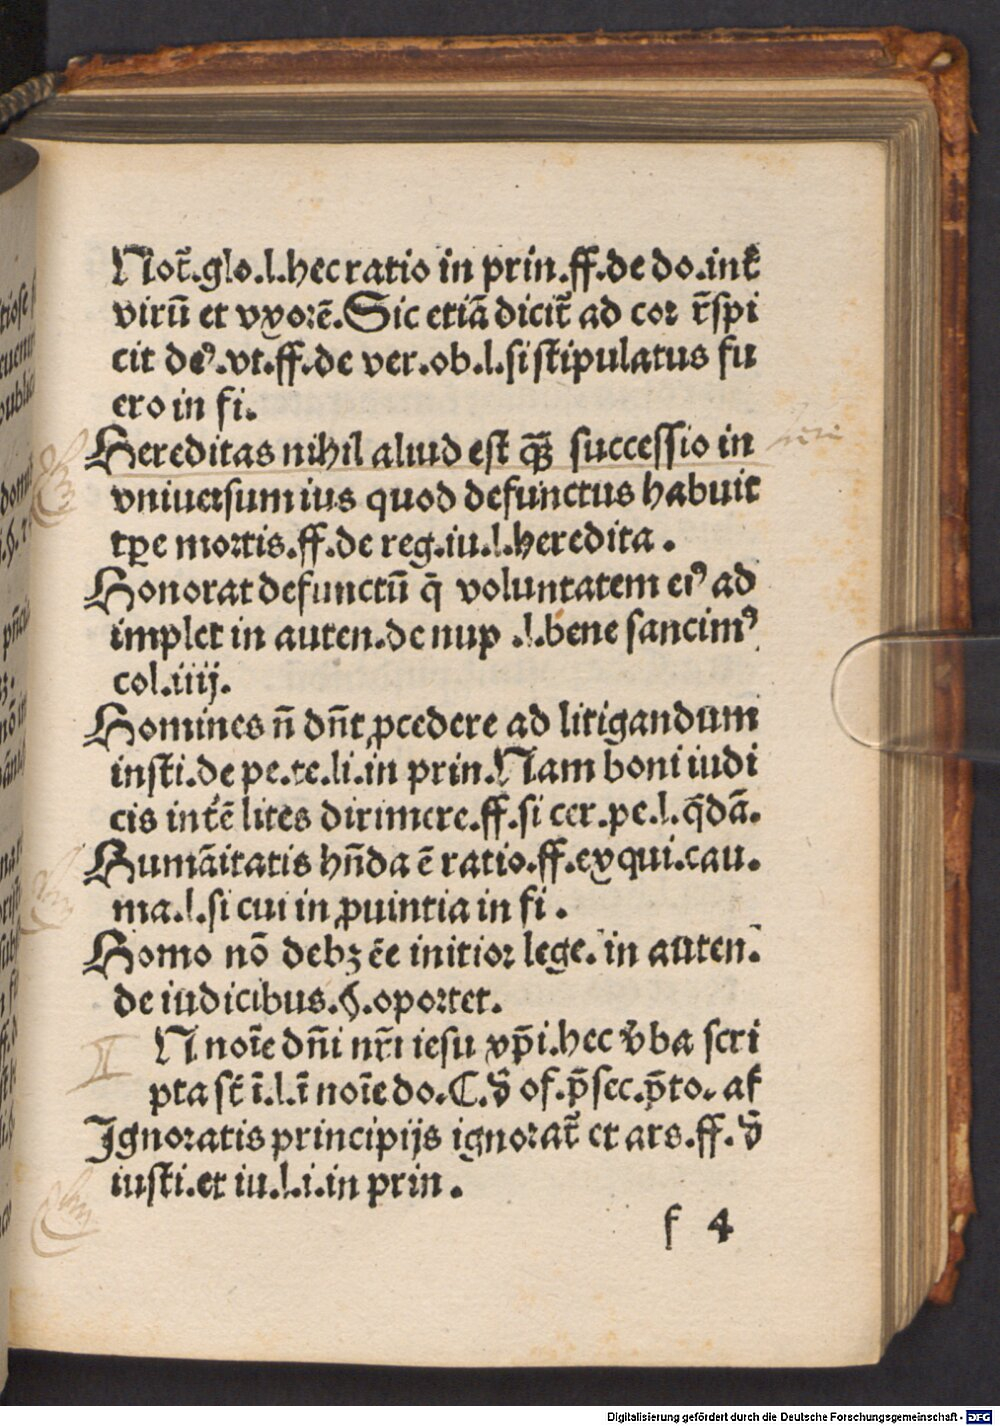 Not̄.glo.l.hec ratio in prin.ff.de do.int̄
virū et vxorē.Sic etiā dicit̄ ad cor r̄spi
cit deꝰ.vt.ff.de ver.ob.l.si stipulatus fu
ero in fi.
Hereditas nihil aliud est qꝫ̄ successio in
vniuersum ius quod defunctus habuit
tꝑe mortis.ff.de reg.iu.l.heredita.
Honorat defunctū q̄ voluntatem eiꝰ ad
implet in auten.de nup .l.bene sancimꝰ
col.iiij.
Homines n̄ dn̄t ꝓcedere ad litigandum
insti.de pe.te.li.in prin.Nam boni iudi
cis int̄ē lites dirimere.ff.si cer.pe.l.q̄dā.
Humāitatis hn̄da ē ratio.ff.ex qui.cau.
ma.l.si cui in ꝓuintia in fi.
Homo nō debꝫ ēe initior lege.in auten.
de iudicibus.§.oportet.
N noīe dn̄i nr̄i iesu xp̄i.hec v̄ba scri
pta st̄ ī.l.ī noīe do.C.d̄ of.p̄sec.p̄to. af
Ignoratis principijs ignorat̄ et ars.ff.d̄
iusti.et iu.l.i.in prin.
f 4
Digitalisierung gefördert durch die Deutsche Forschungsgemeinschaft - DFG